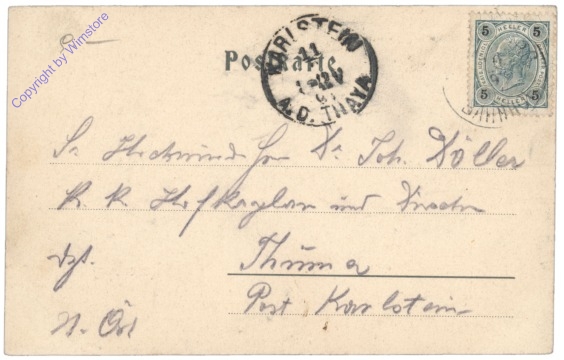 Copyright by Wimstore
Postkarte
KARLSTEIN
11
A.D. THAYA
5 HELLER 5
5 HELLER 5
BAHNHOF
Sr Hochwürden Herr Dr Joh. Döller
K. K. Hofkaplan und Direktor
dzt. Thuma
Post Karlstein
N. Öst